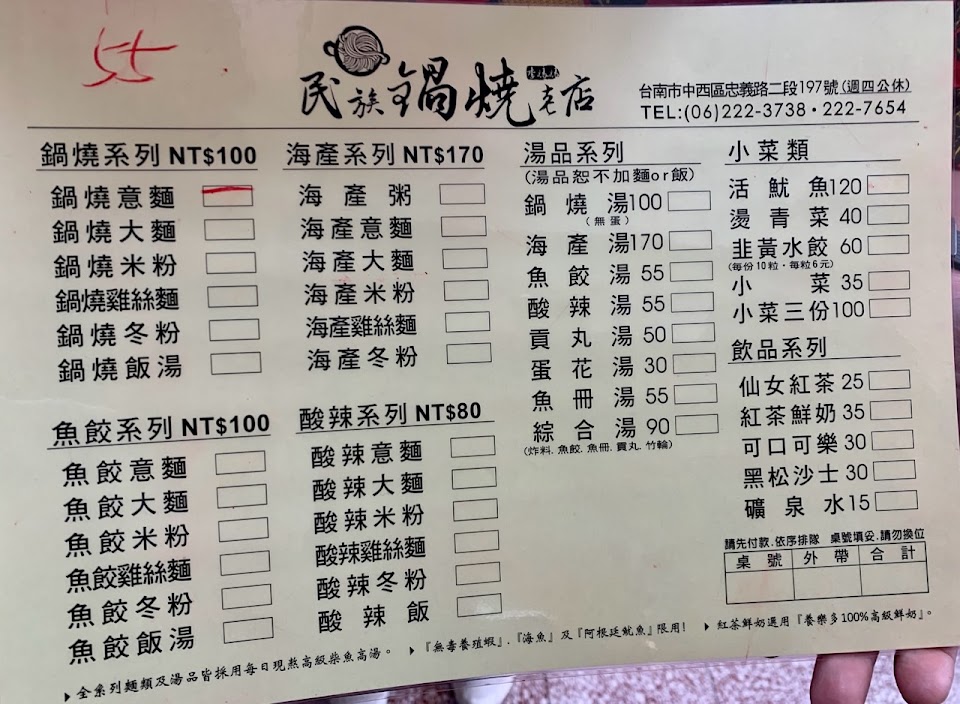 55
民族鍋燒老店
台南市中西區忠義路二段197號(週四公休)
TEL:(06)222-3738•222-7654
鍋燒系列 NT$100
鍋燒意麵
鍋燒大麵
鍋燒米粉
鍋燒雞絲麵
鍋燒冬粉
鍋燒飯湯
魚餃系列 NT$100
魚餃意麵
魚餃大麵
魚餃米粉
魚餃雞絲麵
魚餃冬粉
魚餃飯湯
海產系列 NT$170
海產粥
海產意麵
海產大麵
海產米粉
海產雞絲麵
海產冬粉
酸辣系列 NT$80
酸辣意麵
酸辣大麵
酸辣米粉
酸辣雞絲麵
酸辣冬粉
酸辣飯
湯品系列
(湯品恕不加麵or飯)
鍋燒湯100
(無蛋)
海產湯170
魚餃湯 55
酸辣湯 55
貢丸湯 50
蛋花湯 30
魚冊湯 55
綜合湯 90
(炸料.魚餃.魚冊.貢丸.竹輪)
小菜類
活魷魚120
燙青菜 40
韭黃水餃 60
(每份10粒•每粒6元)
小菜 35
小菜三份100
飲品系列
仙女紅茶 25
紅茶鮮奶 35
可口可樂 30
黑松沙士 30
礦泉水 15
請先付款.依序排隊 桌號填妥.請勿換位
桌號 外帶 合計
▶全系列麵類及湯品皆採用每日現熬高級柴魚高湯。 ▶『無毒養殖蝦』.『海魚』及『阿根廷魷魚』限用! ▶紅茶鮮奶選用『養樂多100%高級鮮奶』。